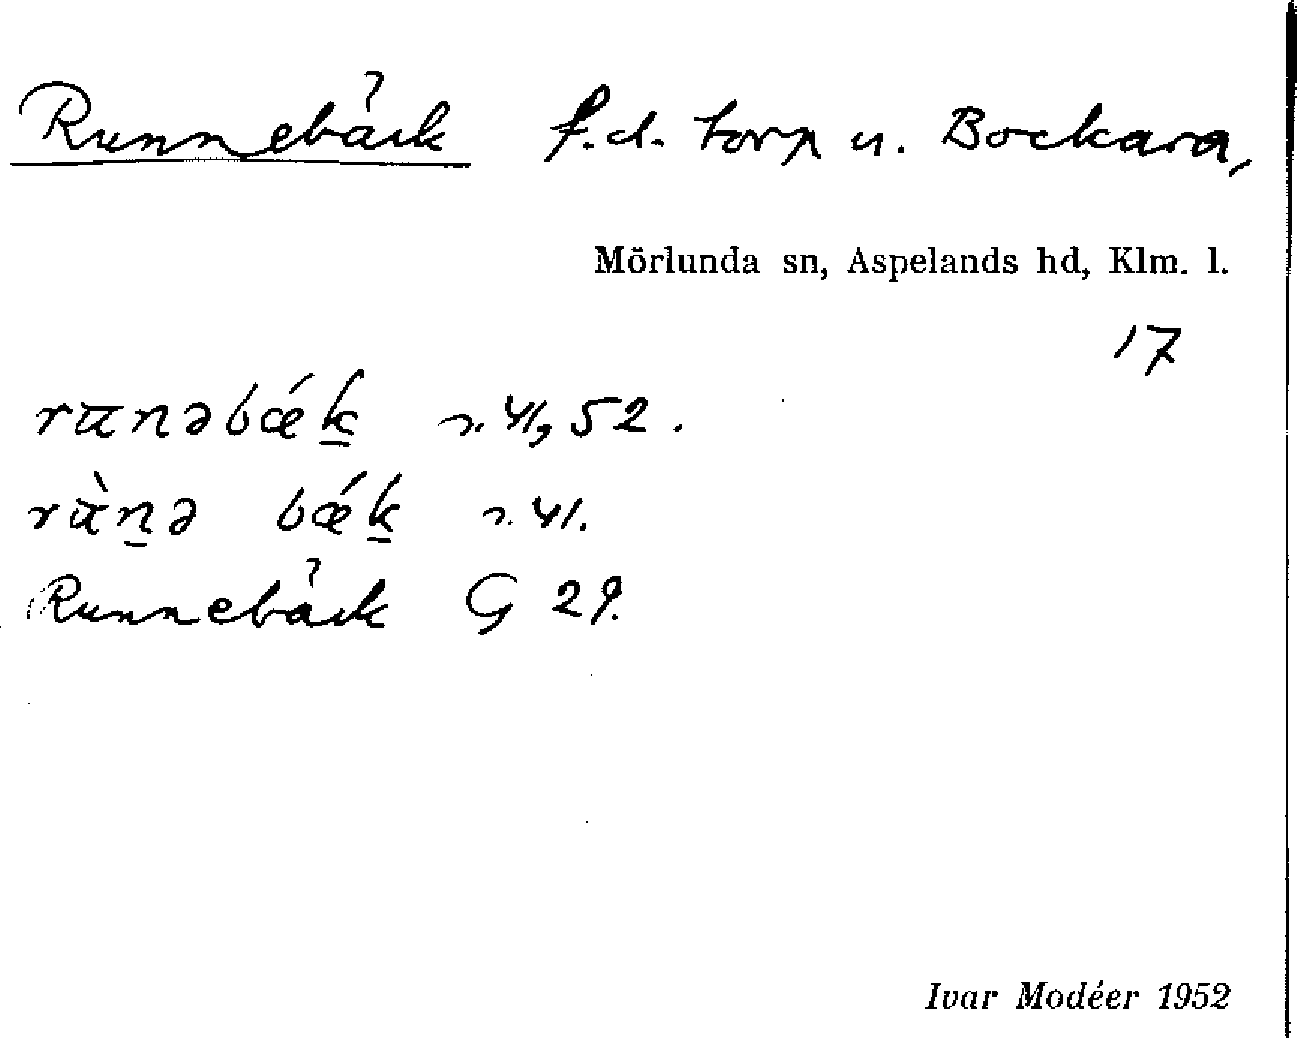 Runnebäck f.d. torp u. Bockara,
Mörlunda sn, Aspelands hd, Klm. l.
17
runəbǽk̲ s. 41, 52.
rùn̲ə bǽk̲ s. 41.
Runnebäck G 29.
Ivar Modéer 1952